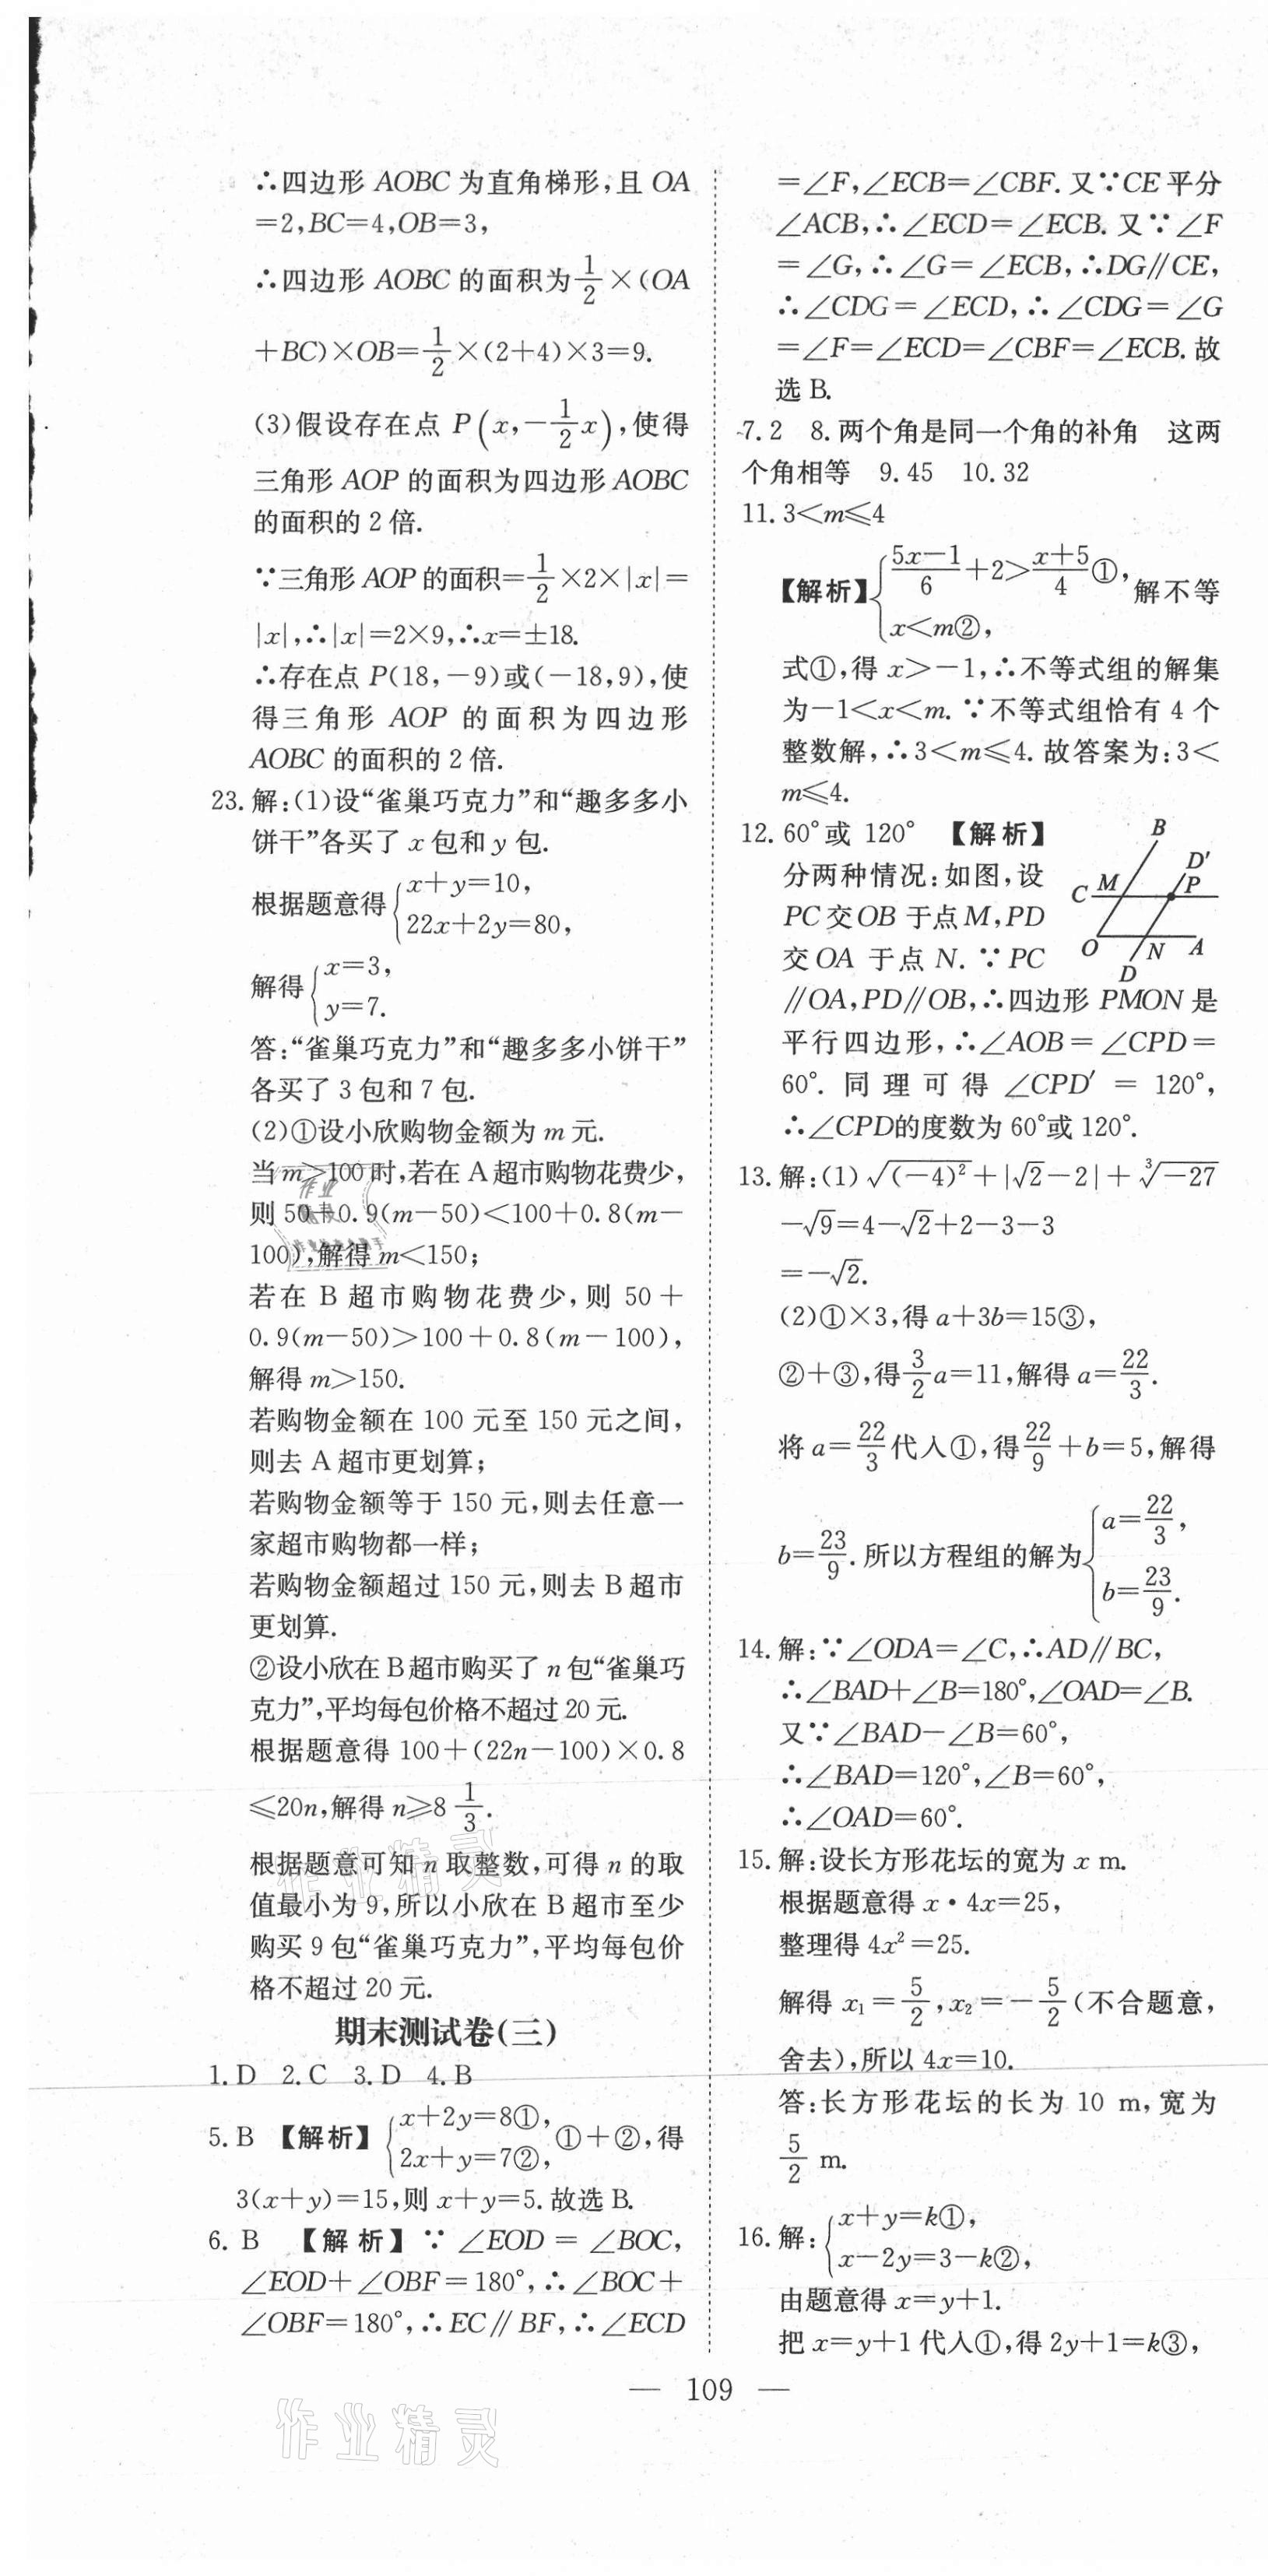 ∴四边形 AOBC 为直角梯形,且 OA
=2,BC=4,OB=3,
∴四边形 AOBC 的面积为\frac{1}{2}×(OA
+BC)×OB=\frac{1}{2}×(2+4)×3=9.
(3)假设存在点 P(x,-\frac{1}{2}x),使得
三角形 AOP 的面积为四边形 AOBC
的面积的 2 倍.
∵三角形 AOP 的面积=\frac{1}{2}×2×|x|=
|x|,∴|x|=2×9,∴x=±18.
∴存在点 P(18,-9)或(-18,9),使
得三角形 AOP 的面积为四边形
AOBC 的面积的 2 倍.
23.解:(1)设“雀巢巧克力”和“趣多多小
饼干”各买了 x 包和 y 包.
根据题意得{x+y=10,
22x+2y=80,
解得{x=3,
y=7.
答:“雀巢巧克力”和“趣多多小饼干”
各买了 3 包和 7 包.
(2)①设小欣购物金额为 m 元.
当 m>100 时,若在 A 超市购物花费少,
则 50+0.9(m-50)<100+0.8(m-
100),解得 m<150;
若在 B 超市购物花费少,则 50+
0.9(m-50)>100+0.8(m-100),
解得 m>150.
若购物金额在 100 元至 150 元之间,
则去 A 超市更划算;
若购物金额等于 150 元,则去任意一
家超市购物都一样;
若购物金额超过 150 元,则去 B 超市
更划算.
②设小欣在 B 超市购买了 n 包“雀巢巧
克力”,平均每包价格不超过 20 元.
根据题意得 100+(22n-100)×0.8
≤20n,解得 n≥8\frac{1}{3}.
根据题意可知 n 取整数,可得 n 的取
值最小为 9,所以小欣在 B 超市至少
购买 9 包“雀巢巧克力”,平均每包价
格不超过 20 元.
期末测试卷(三)
1.D 2.C 3.D 4.B
5.B 【解析】{x+2y=8①,
2x+y=7②, ①+②,得
3(x+y)=15,则 x+y=5.故选 B.
6. B 【解析】∵∠EOD=∠BOC,
∠EOD+∠OBF=180°,∴∠BOC+
∠OBF=180°,∴EC∥BF,∴∠ECD
=∠F,∠ECB=∠CBF.又∵CE 平分
∠ACB,∴∠ECD=∠ECB.又∵∠F
=∠G,∴∠G=∠ECB,∴DG∥CE,
∴∠CDG=∠ECD,∴∠CDG=∠G
=∠F=∠ECD=∠CBF=∠ECB.故
选 B.
7.2 8.两个角是同一个角的补角 这两
个角相等 9.45 10.32
11.3<m≤4
【解析】{\frac{5x-1}{6}+2>\frac{x+5}{4}①,
x<m②, 解不等
式①,得 x>-1,∴不等式组的解集
为-1<x<m.∵不等式组恰有 4 个
整数解,∴3<m≤4.故答案为:3<
m≤4.
12.60°或 120° 【解析】
分两种情况:如图,设
PC 交 OB 于点 M,PD
交 OA 于点 N.∵PC
∥OA,PD∥OB,∴四边形 PMON 是
平行四边形,∴∠AOB=∠CPD=
60°.同理可得∠CPD′=120°,
∴∠CPD的度数为 60°或 120°.
B
D′
C M P
O N A
D
13.解:(1)√(-4)²+|√2-2|+∛-27
-√9=4-√2+2-3-3
=-√2.
(2)①×3,得 a+3b=15③,
②+③,得\frac{3}{2}a=11,解得 a=\frac{22}{3}.
将 a=\frac{22}{3}代入①,得\frac{22}{9}+b=5,解得
b=\frac{23}{9}.所以方程组的解为{a=\frac{22}{3},
b=\frac{23}{9}.
14.解:∵∠ODA=∠C,∴AD∥BC,
∴∠BAD+∠B=180°,∠OAD=∠B.
又∵∠BAD-∠B=60°,
∴∠BAD=120°,∠B=60°,
∴∠OAD=60°.
15.解:设长方形花坛的宽为 x m.
根据题意得 x·4x=25,
整理得 4x²=25.
解得 x₁=\frac{5}{2},x₂=-\frac{5}{2}(不合题意,
舍去),所以 4x=10.
答:长方形花坛的长为 10 m,宽为
\frac{5}{2} m.
16.解:{x+y=k①,
x-2y=3-k②,
由题意得 x=y+1.
把 x=y+1 代入①,得 2y+1=k③,
— 109 —
作业精灵
作业精灵